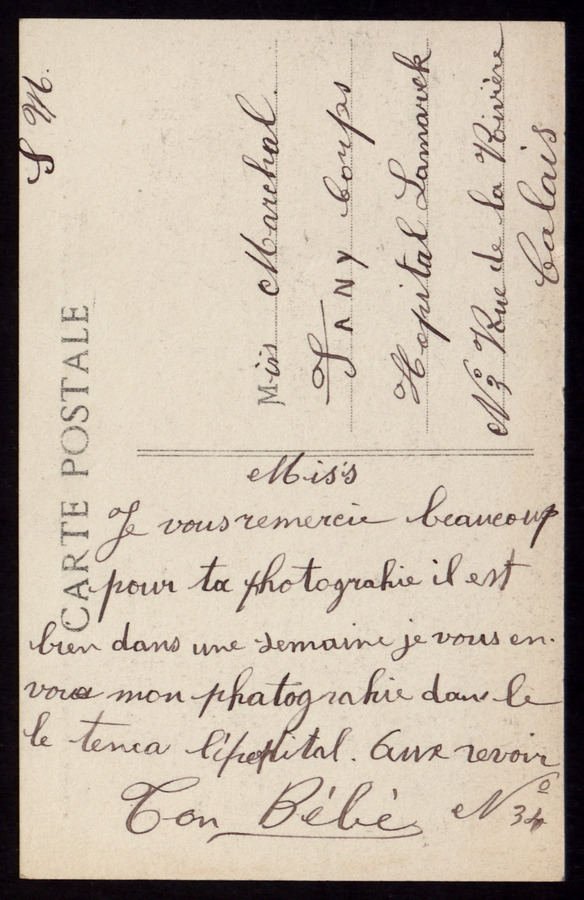 S M.
CARTE POSTALE
Miss Marchal.
FANY Corps
Hopital Lamarck
No 3 Rue de la Rivière
Calais
Miss
Je vous remercie beaucoup
pour ta photograhie il est
bien dans une semaine je vous en-
voie mon phatograhie dans le
le tenca l'hopital. Aux revoir
Ton Bébé No 34